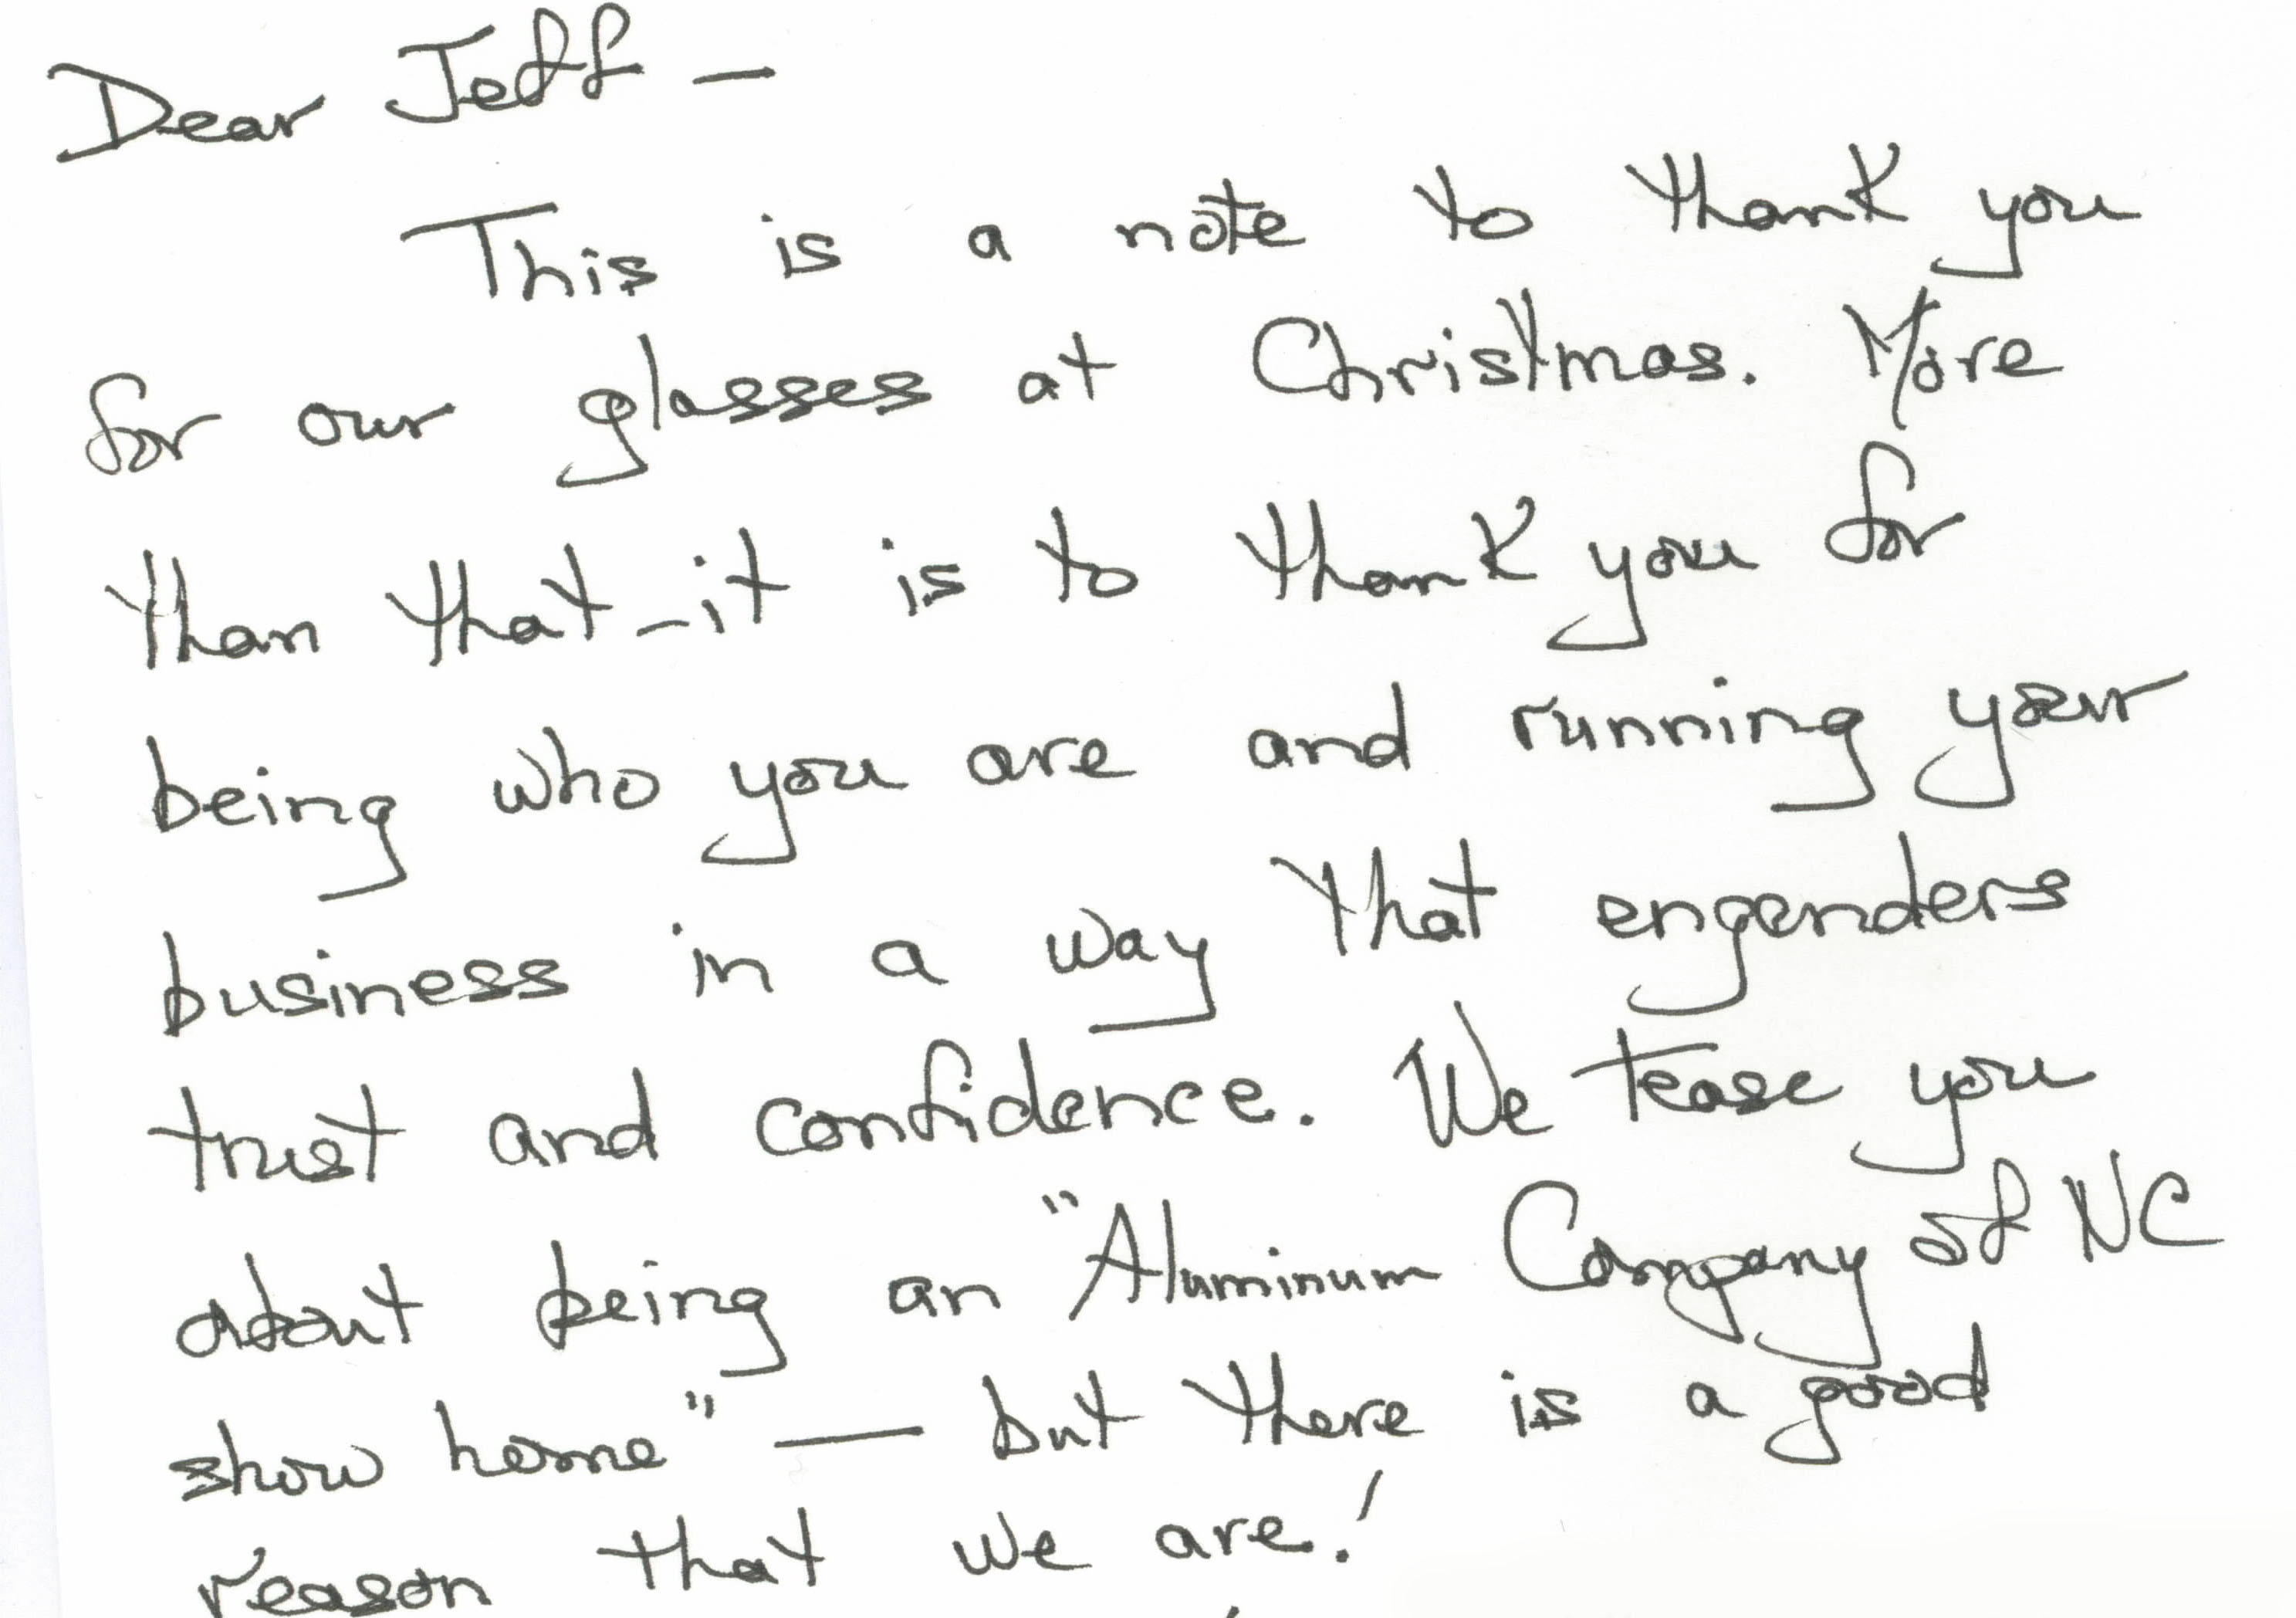 Dear Jeff —
This is a note to thank you
for our glasses at Christmas. More
than that - it is to thank you for
being who you are and running your
business in a way that engenders
trust and confidence. We tease you
about being an "Aluminum Company of NC
show home" — but there is a good
reason that we are!